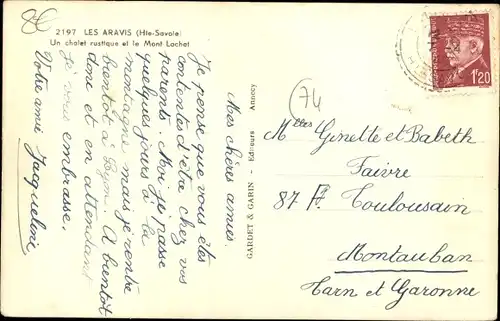 8€
2197 LES ARAVIS (Hte-Savoie)
Un chalet rustique et le Mont Lachat
Mes chères amies.
Je pense que vous êtes
contentes d'être chez vos
parents. Moi je passe
quelques jours à la
montagne mais je rentre
bientôt à Lyon. A bientôt
donc et en attendant
je vous embrasse.
Votre amie Jacqueline
GARDET & GARIN - Editeurs Annecy
74
1f20
Melles Ginette et Babeth
Faivre
87 F. Toulousain
Montauban
Tarn et Garonne